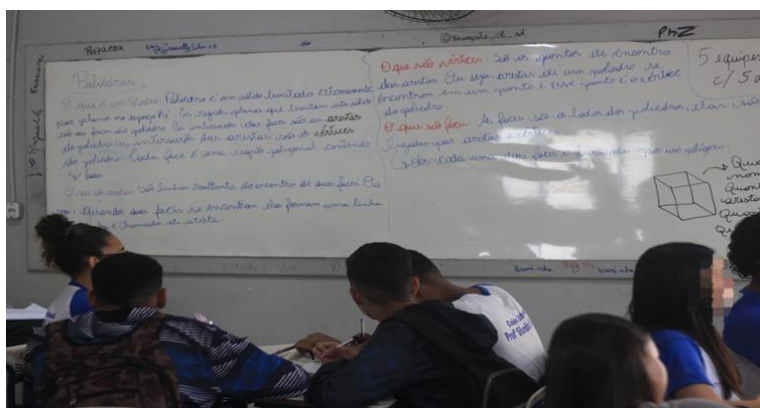 PhZ
Poliedros,
O que é um Poliedro: Poliedro é um sólido limitado externamente
por planos no espaço R³. As regiões planas que limitam este sólido
são as faces do poliedro. As interseções das faces são as arestas
do poliedro. As interseções das arestas são os vértices
do poliedro. Cada face é uma região poligonal contendo
"n" lados.
O que são arestas: São linhas resultante do encontro de duas faces. Ou
seja, quando duas faces se encontram elas formam uma linha
e chamada de aresta.
O que são vértices: São os pontos de encontro
das arestas. Ou seja, arestas de um poliedro se
encontram em um ponto e esse ponto é o vértice
do poliedro.
O que são faces: As faces são os lados dos poliedros, elas são
ligadas por arestas e vértices.
cada uma das faces é formada por um polígono.
5 equipes
c/ 5 a
Quan
aresta